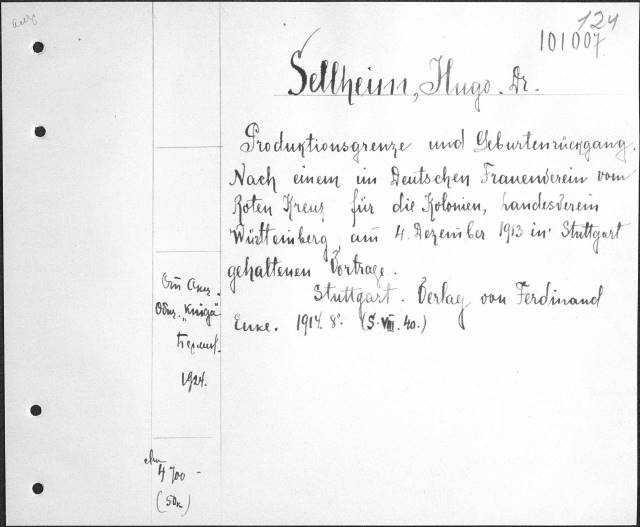 124
101007
Sellheim, Hugo. Dr.
Produktionsgrenze und Geburtenrückgang.
Nach einem im Deutschen Frauenverein vom
Roten Kreuz für die Kolonien, Landesverein
Württemberg, am 4. Dezember 1913 in Stuttgart
gehaltenen Vortrage.
Stuttgart. Verlag von Ferdinand
Enke. 1914. 8°. (S. VIII. 40.)
От Акц.
Общ. "Книга"
Берлин.
1924.
4700 -
(50к)